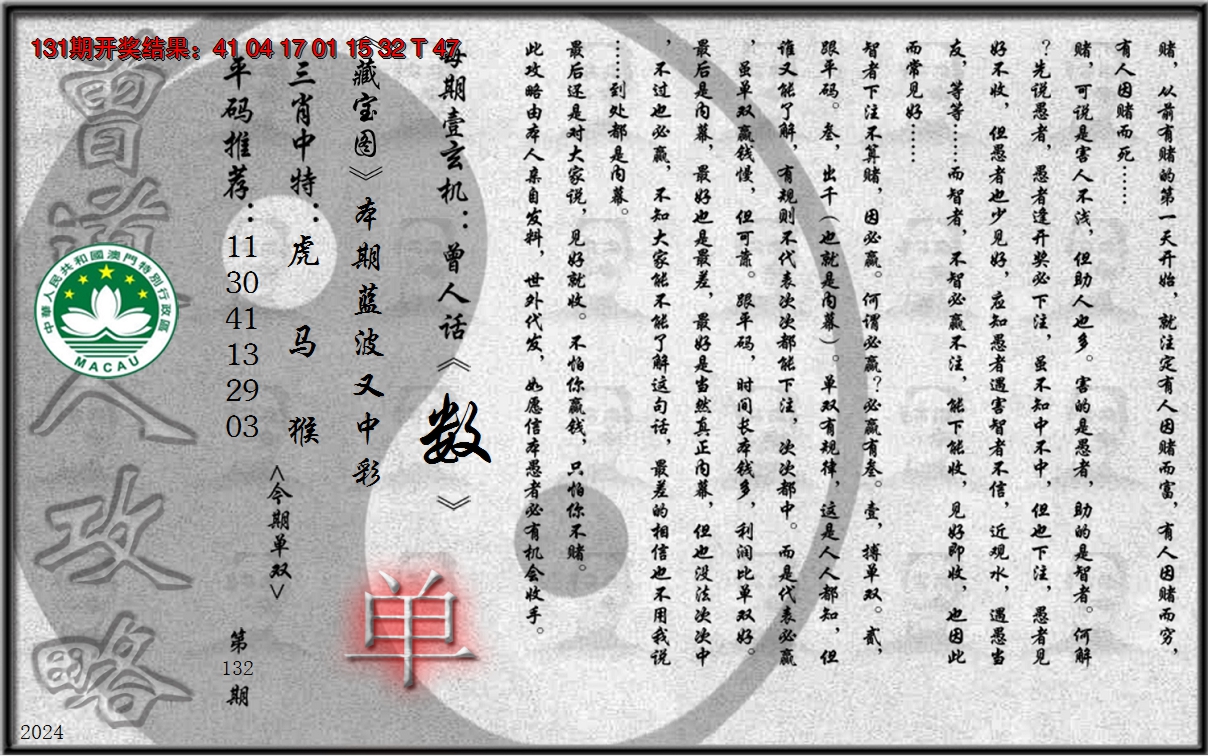 131期开奖结果：41 04 17 01 15 32 T 47
赌，从前有赌的第一天开始，就注定有人因赌而富，有人因赌而穷，
有人因赌而死……
赌，可说是害人不浅，但助人也多。害的是愚者，助的是智者。何解
？先说愚者，愚者逢开奖必下注，虽不知中不中，但也下注，愚者见
好不收，但愚者也少见好，应知愚者遇害智者不信，近观水，遇愚当
友，等等……而智者，不智必赢不注，能下能收，见好即收，也因此
而常见好……
智者下注不算赌，因必赢。何谓必赢？必赢有叁。壹，搏单双。贰，
跟平码。叁，出千（也就是内幕）。单双有规律，这是人人都知，但
谁又能了解，有规则不代表次次都能下注，次次都中。而是代表必赢
，虽单双赢钱慢，但可靠。跟平码，时间长本钱多，利润比单双好。
最后是内幕，最好也是最差，最好是当然真正内幕，但也没法次次中
，不过也必赢，不知大家能不能了解这句话，最差的相信也不用我说
……到处都是内幕。
最后还是对大家说，见好就收。不怕你赢钱，只怕你不赌。
此攻略由本人亲自发料，世外代发，如愿信本愚者必有机会收手。
每期壹玄机：曾人话《数》
《藏宝图》本期蓝波又中彩
单
三肖中特：虎 马 猴
<今期单双>
平码推荐：
11
30
41
13
29
03
第
132
期
曾道人攻略
中華人民共和國澳門特別行政區
MACAU
2024